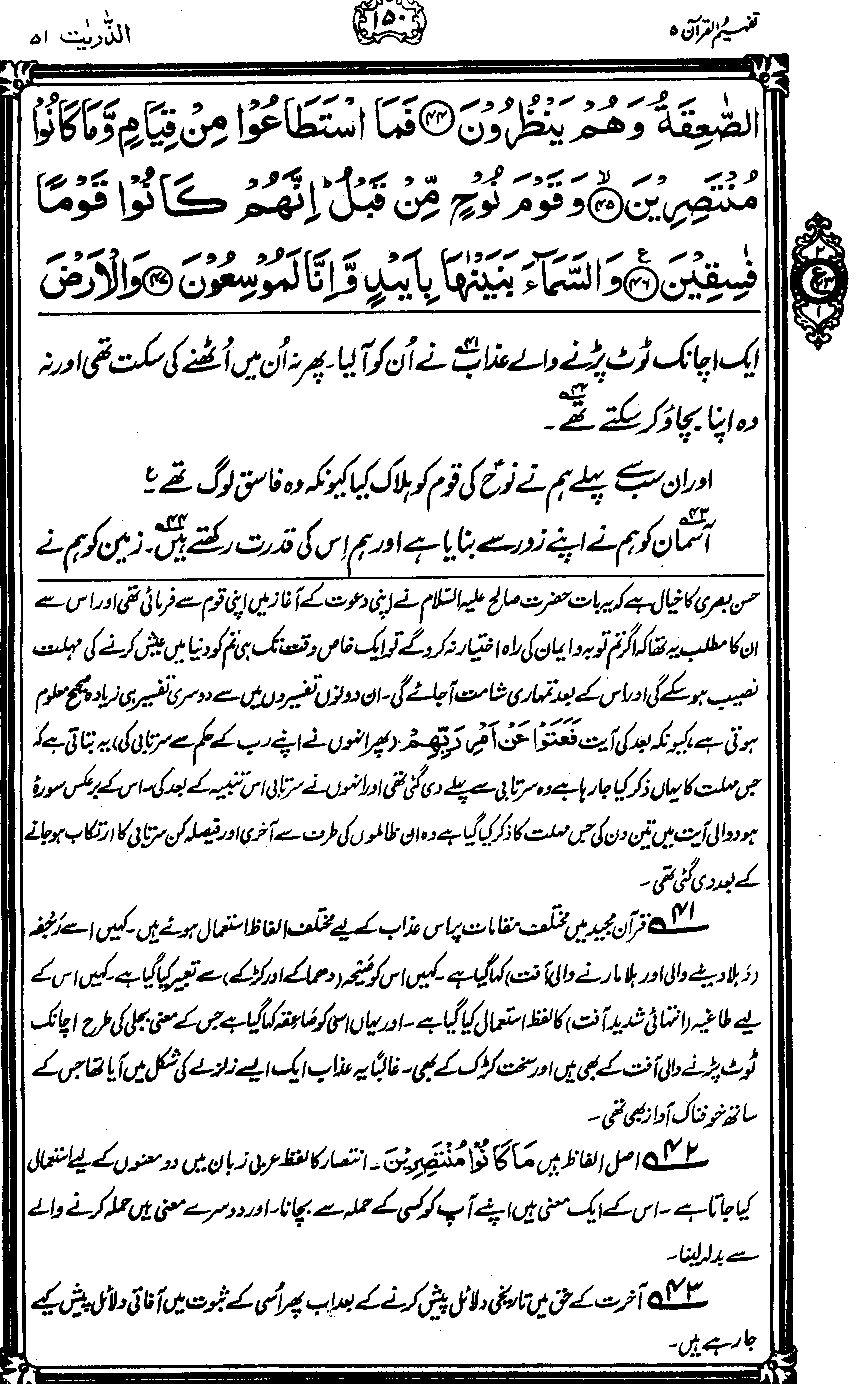 تفہیم القرآن ۵
۱۵۰
الذّٰریٰت ۵۱
الصّٰعِقَةُ وَهُمْ يَنْظُرُوْنَ ﴿۴۴﴾ فَمَا اسْتَطَاعُوْا مِنْ قِيَامٍ وَّمَا كَانُوْا
مُنْتَصِرِيْنَ ﴿۴۵﴾ۙ وَقَوْمَ نُوْحٍ مِّنْ قَبْلُ ؕ اِنَّهُمْ كَانُوْا قَوْمًا
فٰسِقِيْنَ ﴿۴۶﴾ع وَالسَّمَآءَ بَنَيْنٰهَا بِاَيْىدٍ وَّاِنَّا لَمُوْسِعُوْنَ ﴿۴۷﴾ وَالْاَرْضَ
۲
ع ۲۳
۱
ایک اچانک ٹوٹ پڑنے والے عذاب۴۱ نے اُن کو آلیا۔ پھر نہ اُن میں اُٹھنے کی سکت تھی اور نہ
وہ اپنا بچاؤ کر سکتے تھے۴۲۔
اور ان سب سے پہلے ہم نے نوحؑ کی قوم کو ہلاک کیا کیونکہ وہ فاسق لوگ تھے ع
آسمان۴۳ کو ہم نے اپنے زور سے بنایا ہے اور ہم اِس کی قدرت رکھتے ہیں۴۴۔ زمین کو ہم نے
حسن بصری کا خیال ہے کہ یہ بات حضرت صالح علیہ السلام نے اپنی دعوت کے آغاز میں اپنی قوم سے فرمائی تھی اور اس سے
ان کا مطلب یہ تھا کہ اگر تم توبہ و ایمان کی راہ اختیار نہ کرو گے تو ایک خاص وقت تک ہی تم کو دنیا میں عیش کرنے کی مہلت
نصیب ہو سکے گی اور اس کے بعد تمہاری شامت آجائے گی۔ ان دونوں تفسیروں میں سے دوسری تفسیر ہی زیادہ صحیح معلوم
ہوتی ہے، کیونکہ بعد کی آیت فَعَتَوْا عَنْ اَمْرِ رَبِّهِمْ (پھر انہوں نے اپنے رب کے حکم سے سرتابی کی) یہ بتاتی ہے کہ
جس مہلت کا یہاں ذکر کیا جا رہا ہے وہ سرتابی سے پہلے دی گئی تھی اور انہوں نے سرتابی اس تنبیہ کے بعد کی۔ اس کے برعکس سورۂ
ہود والی آیت میں تین دن کی جس مہلت کا ذکر کیا گیا ہے وہ ان ظالموں کی طرف سے آخری اور فیصلہ کن سرتابی کا ارتکاب ہو جانے
کے بعد دی گئی تھی۔
۴۱ قرآن مجید میں مختلف مقامات پر اس عذاب کے لیے مختلف الفاظ استعمال ہوئے ہیں۔ کہیں اسے رَجفہ
(دَہلا دینے والی اور ہلا مارنے والی آفت) کہا گیا ہے۔ کہیں اس کو صَیْحہ (دھماکے اور کڑکے) سے تعبیر کیا گیا ہے۔ کہیں اس کے
لیے طاغیہ (انتہائی شدید آفت) کا لفظ استعمال کیا گیا ہے۔ اور یہاں اسی کو صَاعقہ کہا گیا ہے جس کے معنی بجلی کی طرح اچانک
ٹوٹ پڑنے والی آفت کے بھی ہیں اور سخت کڑک کے بھی۔ غالبًا یہ عذاب ایک ایسے زلزلے کی شکل میں آیا تھا جس کے
ساتھ خوفناک آواز بھی تھی۔
۴۲ اصل الفاظ ہیں مَا كَانُوْا مُنْتَصِرِيْنَ۔ انتصار کا لفظ عربی زبان میں دو معنوں کے لیے استعمال
کیا جاتا ہے۔ اس کے ایک معنی ہیں اپنے آپ کو کسی کے حملہ سے بچانا۔ اور دوسرے معنی ہیں حملہ کرنے والے
سے بدلہ لینا۔
۴۳ آخرت کے حق میں تاریخی دلائل پیش کرنے کے بعد اب پھر اُسی کے ثبوت میں آفاقی دلائل پیش کیے
جا رہے ہیں۔